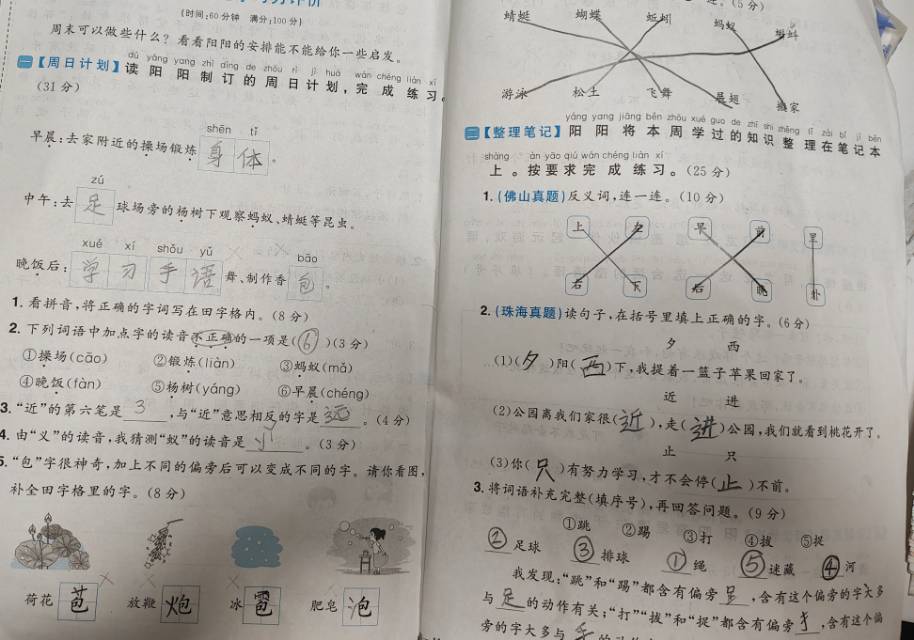 (时间:60分钟 满分:100分)
周末可以做些什么?看看阳阳的安排能不能给你一些启发。
dú yáng yang zhì dìng de zhōu rì jì huà wán chéng liàn xí
一【周日计划】读阳阳制订的周日计划,完成练习。
(31分)
shēn tǐ
早晨:去家附近的操场锻炼 身 体 。
zú
中午:去 足 球场旁的杨树下观察蚂蚁、蜻蜓等昆虫。
xué xí shǒu yǔ bāo
晚饭后: 学 习 手 语 舞、制作香 包 。
1. 看拼音,将正确的字词写在田字格内。(8分)
2. 下列词语中加点字的读音不正确的一项是( ⑥ )(3分)
①操场(cāo) ②锻炼(liàn) ③蚂蚁(mǎ)
④晚饭(fàn) ⑤杨树(yáng) ⑥早晨(chéng)
3. “近”的第六笔是 3 ,与“近”意思相反的字是 远 。(4分)
4. 由“义”的读音,我猜测“蚁”的读音是 yǐ 。(3分)
5. “包”字很神奇,加上不同的偏旁后可以变成不同的字。请你看图,
补全田字格里的字。(8分)
荷花 苞 放鞭 炮 冰 雹 肥皂 泡
(5分)
蜻蜓 蝴蝶 蚯蚓 蚂蚁 蝌蚪
游泳 松土 飞舞 展翅 搬家
yáng yang jiāng běn zhōu xué guo de zhī shi zhěng lǐ zài bǐ jì běn
二【整理笔记】阳阳将本周学过的知识整理在笔记本
shàng àn yāo qiú wán chéng liàn xí
上。按要求完成练习。(25分)
1. (佛山真题)反义词,连一连。(10分)
上 夕 早 前 里
右 下 后 晚 外
2. (珠海真题)读句子,在括号里填上正确的字。(6分)
夕 西
(1)( 夕 )阳( 西 )下,我提着一篮子苹果回家了。
近 进
(2)公园离我们家很( 近 ),走( 进 )公园,我们就看到桃花开了。
止 只
(3)你( 只 )有努力学习,才不会停( 止 )不前。
3. 将词语补充完整(填序号),再回答问题。(9分)
①跳 ②踢 ③打 ④拔 ⑤捉
② 足球 ③ 排球 ① 绳 ⑤ 迷藏 ④ 河
我发现:“跳”和“踢”都含有偏旁 𧾷 ,含有这个偏旁的字大多
与 足 的动作有关;“打”“拔”和“捉”都含有偏旁 扌 ,含有这个偏
旁的字大多与 手 的动